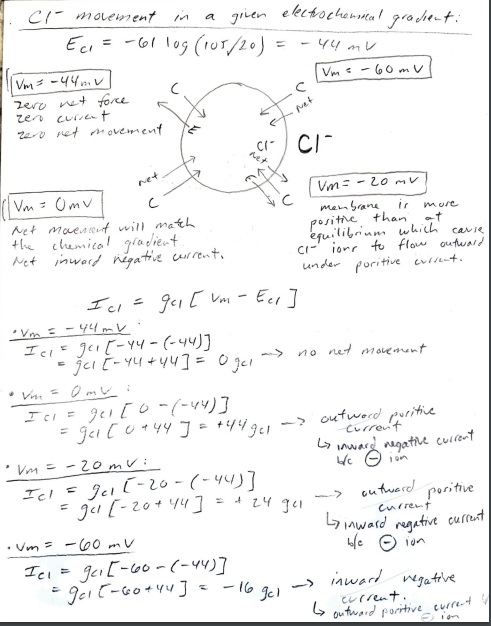 Cl- movement in a given electrochemical gradient:
ECl = -61 log (105/20) = -44 mV
Vm = -44mV
zero net force
zero current
zero net movement
Vm = -60 mV
C
C
E
net
Cl-
Cl-
net
C
C
Vm = 0mV
Net movement will match
the chemical gradient.
Net inward negative current.
Vm = -20 mV
membrane is more
positive than at
equilibrium which cause
Cl- ions to flow outward
under positive current.
ICl = gCl [ Vm - ECl ]
• Vm = -44 mV:
ICl = gCl [-44 - (-44)]
= gCl [-44 + 44] = 0 gCl → no net movement
• Vm = 0mV:
ICl = gCl [ 0 - (-44)]
= gCl [ 0 + 44 ] = +44 gCl → outward positive
current
↳ inward negative current
b/c ⊖ ion
• Vm = -20 mV:
ICl = gCl [-20 - (-44)]
= gCl [-20 + 44] = + 24 gCl → outward positive
current
↳ inward negative current
b/c ⊖ ion
• Vm = -60 mV
ICl = gCl [-60 - (-44)]
= gCl [-60 + 44] = -16 gCl → inward negative
current.
↳ outward positive current
⊖ ion